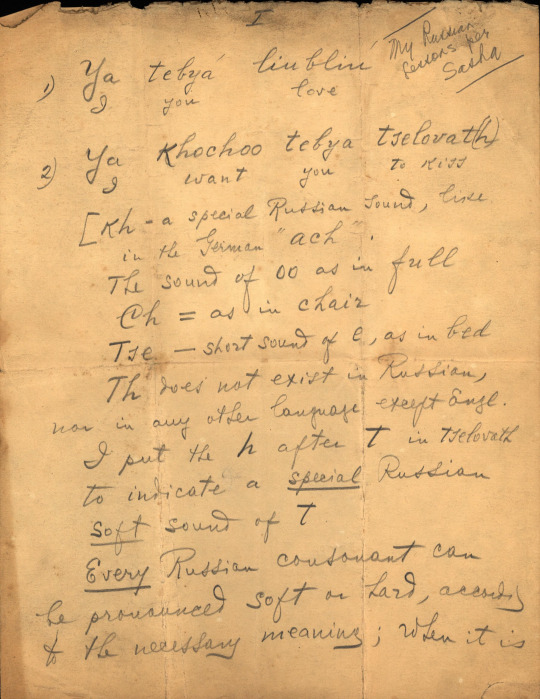 I
My Russian
lessons per
Sasha
1) Ya tebyá liubliu
I you love
2) Ya Khochoo tebya tselovat(h)
I want you to kiss
[Kh - a special Russian sound, like
in the German "ach".
The sound of oo as in full
Ch = as in chair
Tse — short sound of e, as in bed
Th does not exist in Russian,
nor in any other language except Engl.
I put the h after T in Tselovath
to indicate a special Russian
soft sound of T
Every Russian consonant can
be pronounced soft or hard, accordg
to the necessary meaning; when it is